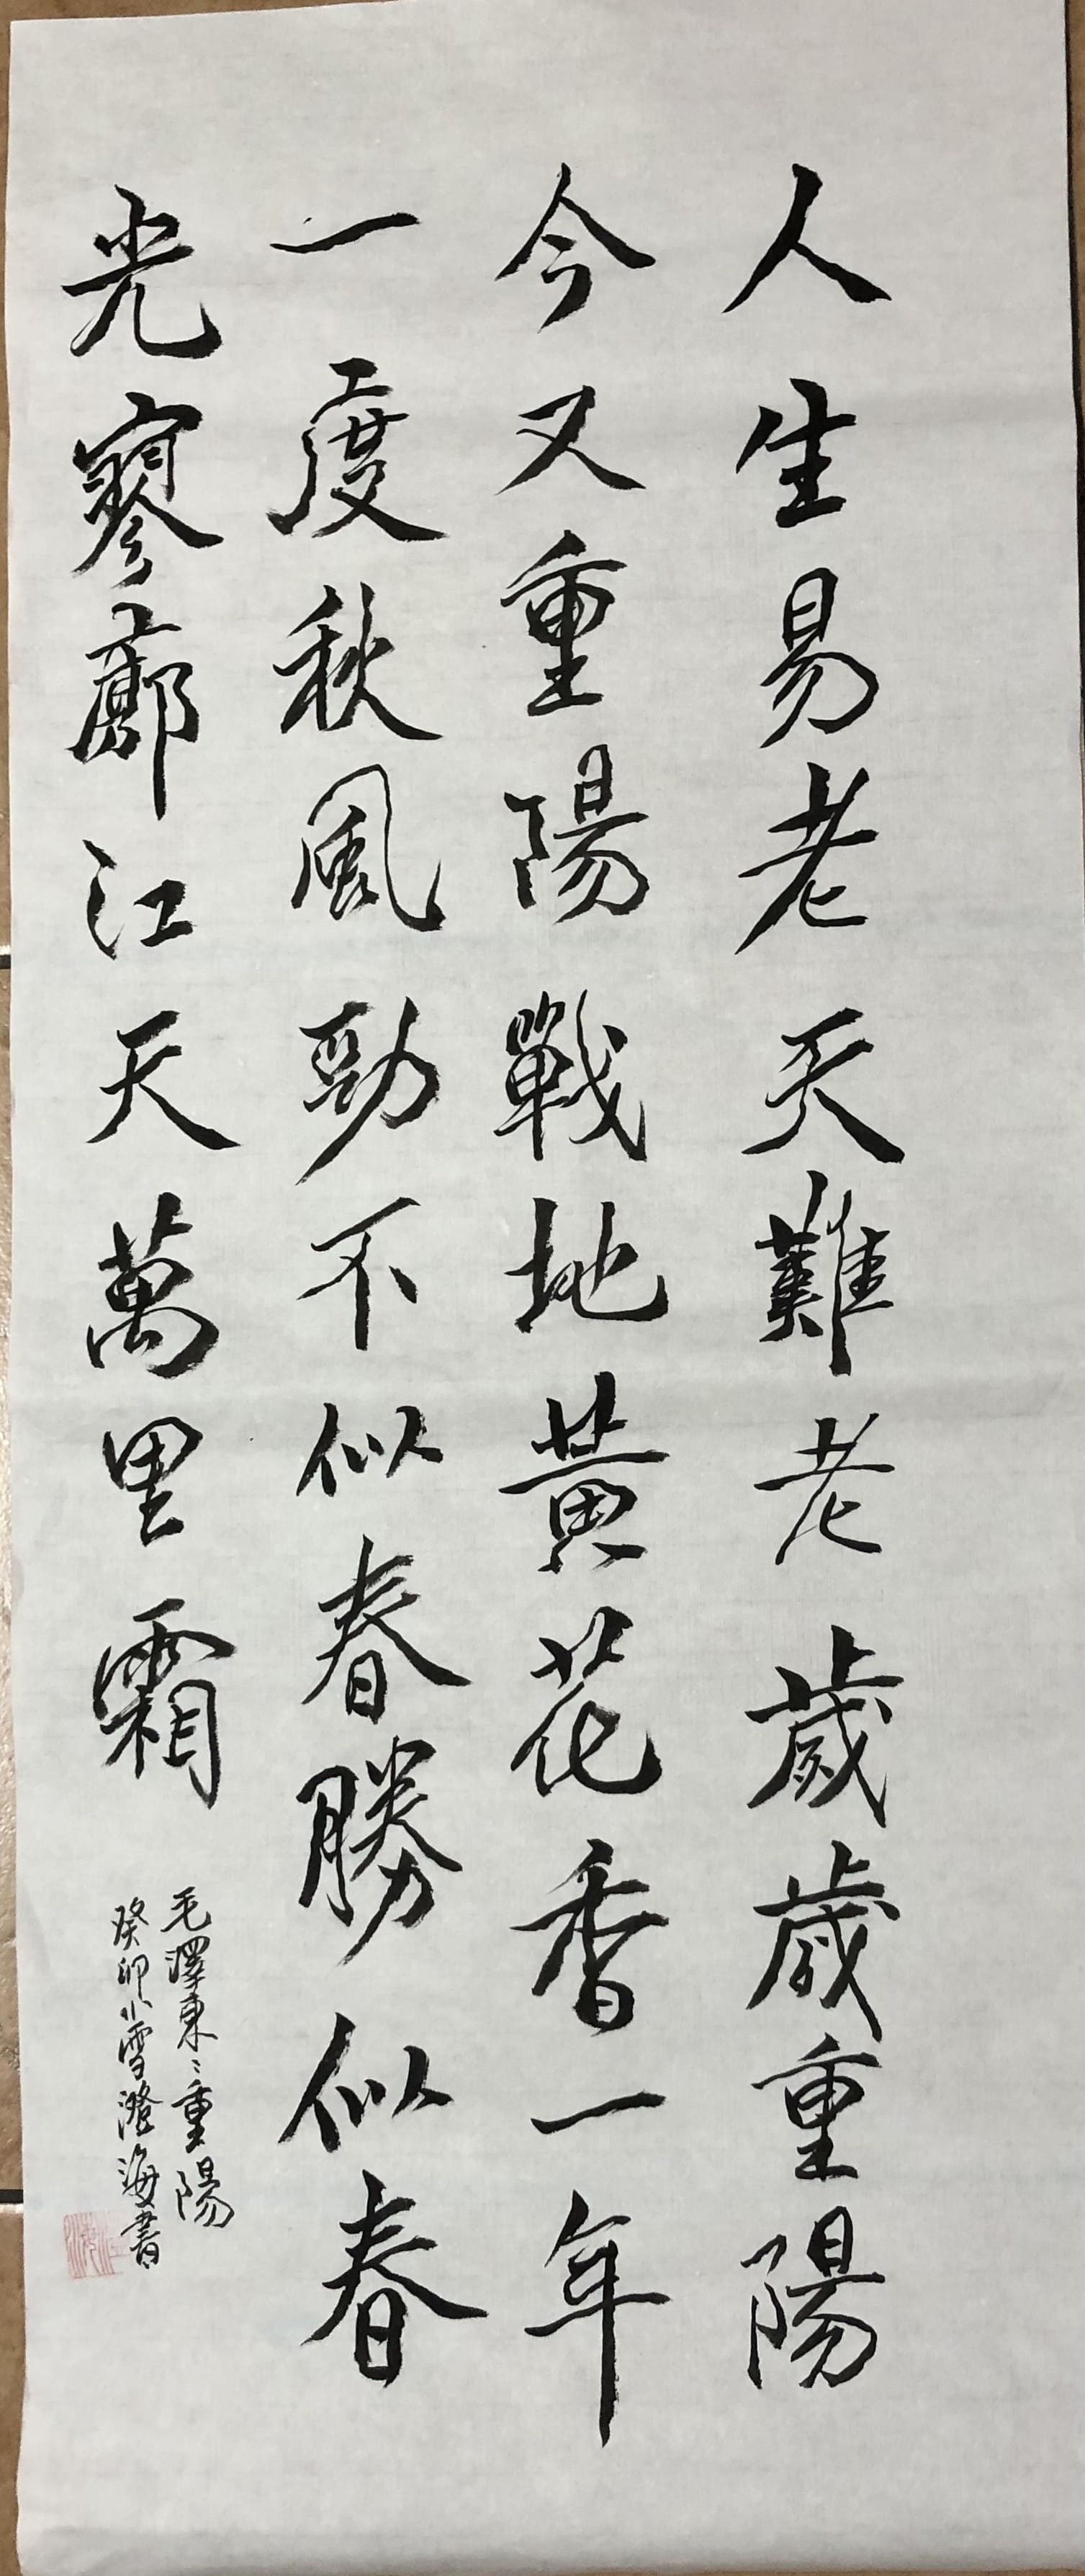 人生易老天難老歲歲重陽
今又重陽戰地黄花香一年
一度秋風勁不似春勝似春
光寥廓江天萬里霜
毛澤東〻重陽
癸卯小雪澄海書